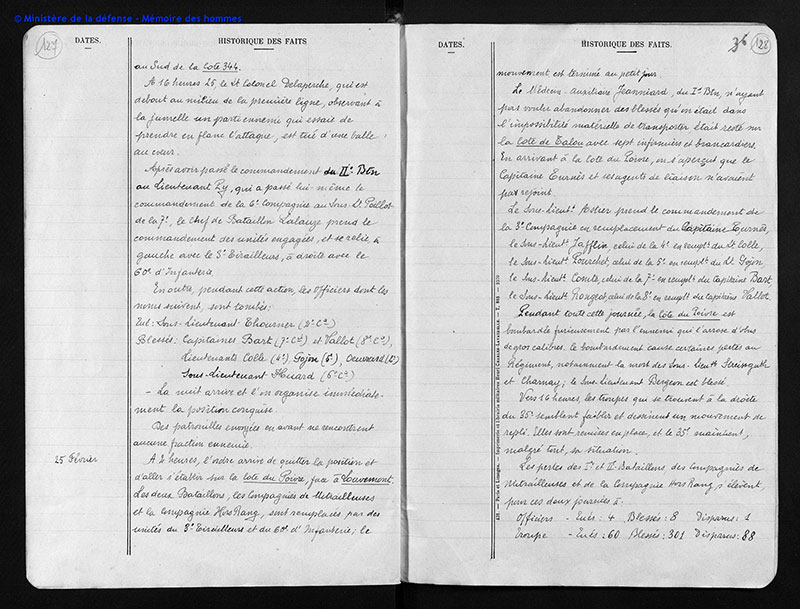 © Ministère de la défense - Mémoire des hommes
127
DATES.
HISTORIQUE DES FAITS
au Sud de la Cote 344.
A 16 heures 25, le Lt Colonel Delaperche, qui est
debout au milieu de la première ligne, observant à
la jumelle un parti ennemi qui essaie de
prendre en flanc l'attaque, est tué d'une balle
au cœur.
Après avoir passé le commandement du IIe Btn
au Lieutenant Py, qui a passé lui-même le
commandement de la 6e Compagnie au Sous-Lt Paillot
de la 7e, le Chef de Bataillon Lalauze prend le
commandement des unités engagées, et se relie à
gauche avec le 3e Tirailleurs, à droite avec le
60e d'Infanterie.
En outre, pendant cette action, les Officiers dont les
noms suivent, sont tombés:
Tué: Sous-Lieutenant Thourner (2e Cie)
Blessés: Capitaines Bart (7e Cie) et Vallot (8e Cie),
Lieutenants Colle (4e), Gojon (5e),
Sous-Lieutenant Huard (6e Cie)
- La nuit arrive et l'on organise immédiate-
ment la position conquise.
Des patrouilles envoyées en avant ne rencontrent
aucune fraction ennemie.
25 Février
A 2 heures, l'ordre arrive de quitter la position et
d'aller s'établir sur la Cote du Poivre, face à Louvemont.
Les deux Bataillons, les Compagnies de Mitrailleuses
et la Compagnie Hors Rang, sont remplacés par des
unités du 3e Tirailleurs et du 60e d'Infanterie; le
DATES.
HISTORIQUE DES FAITS.
36
128
mouvement est terminé au petit jour.
Le Médecin-Auxiliaire Jeanniard, du Ier Btn, n'ayant
pas voulu abandonner des blessés qu'on était dans
l'impossibilité matérielle de transporter était resté sur
la Cote de Talou avec sept infirmiers et brancardiers.
En arrivant à la Cote du Poivre, on s'aperçut que le
Capitaine Turnès et ses agents de liaison n'avaient
pas rejoint.
Le Sous-Lieutt Astier prend le commandement de
la 3e Compagnie en remplacement du Capitaine Turnès,
le Sous-Lieutt Jafflin, celui de la 4e en remplt du Lt Colle,
le Sous-Lieutt Pourchet, celui de la 5e en remplt du Lt Gojon,
le Sous-Lieutt Comte, celui de la 7e en remplt du Capitaine Bart,
le Sous-Lieutt Rougeot, celui de la 8e en remplt du Capitaine Vallot.
Pendant toute cette journée, la Cote du Poivre est
bombardée furieusement par l'ennemi qui l'arrose d'obus
de gros calibres. Le bombardement cause certaines pertes au
Régiment, notamment la mort des Sous-Lieutts
et Charnay; le Sous-Lieutenant Bergeon est blessé.
Vers 16 heures, les troupes qui se trouvent à la droite
du 35e semblent faiblir et dessinent un mouvement de
repli. Elles sont remises en place, et le 35e maintient,
malgré tout, sa situation.
Les pertes des Ier et IIe Bataillons, des Compagnies de
Mitrailleuses et de la Compagnie Hors Rang s'élèvent,
pour ces deux journées à:
Officiers - Tués: 4 Blessés: 8 Disparus: 1
Troupe - Tués: 60 Blessés: 301 Disparus: 88